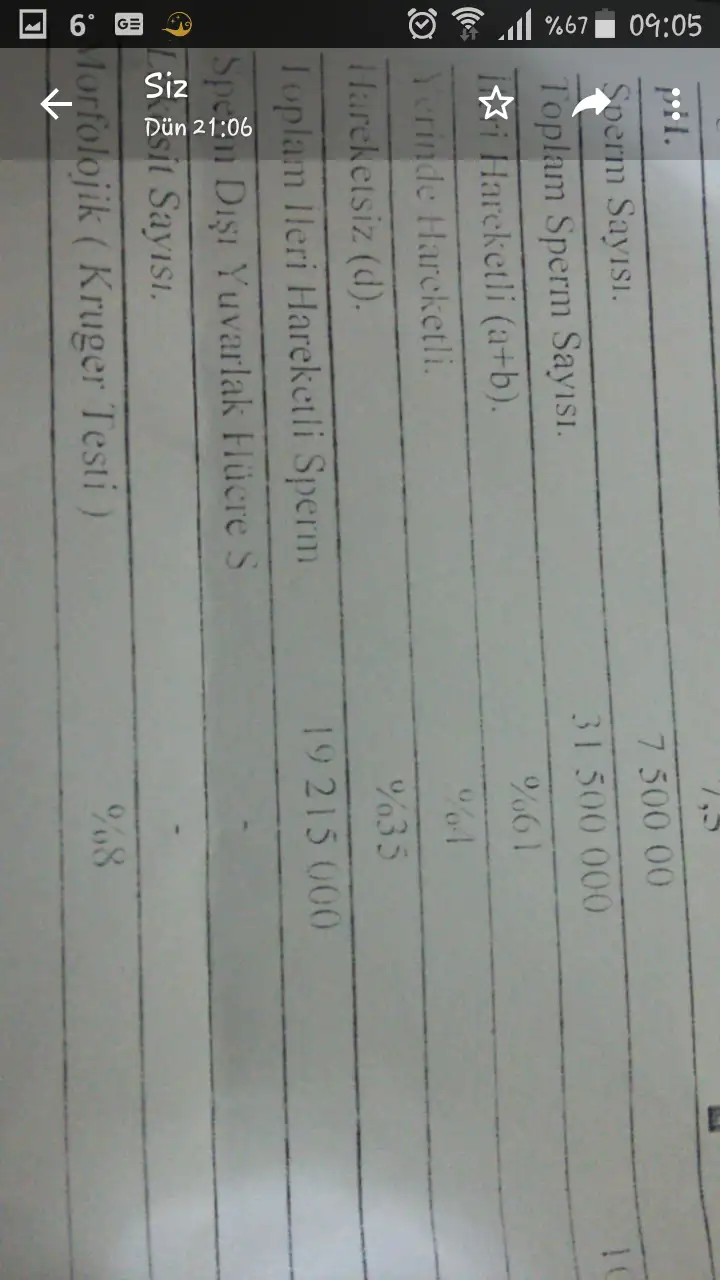 6° GE %67 09:05
Siz
Dün 21:06
pH. 7,5
Sperm Sayısı. 7 500 00
Toplam Sperm Sayısı. 31 500 000
Hareketli (a+b). %61
Yerinde Hareketli. %4
Hareketsiz (d). %35
Toplam İleri Hareketli Sperm 19 215 000
Sperm Dışı Yuvarlak Hücre S -
Sayısı. -
Morfolojik ( Kruger Testi ) %8